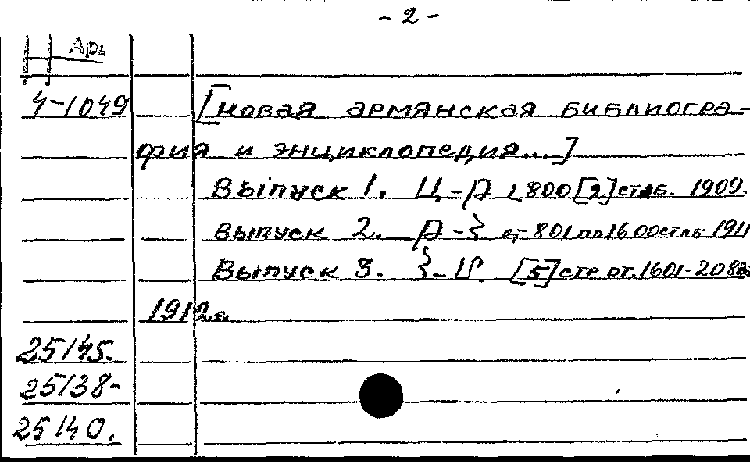 - 2 -
Арм
4-1049 [новая армянская библиогра-
фия и энциклопедия...]
Выпуск 1. Ա-Ք 1,800 [2] стлб. 1909.
выпуск 2. Ք-Հ от 801 по 1600 стлб 1911
Выпуск 3. [5] стр от. 1601-208
1912г.
25145.
25138-
25140.